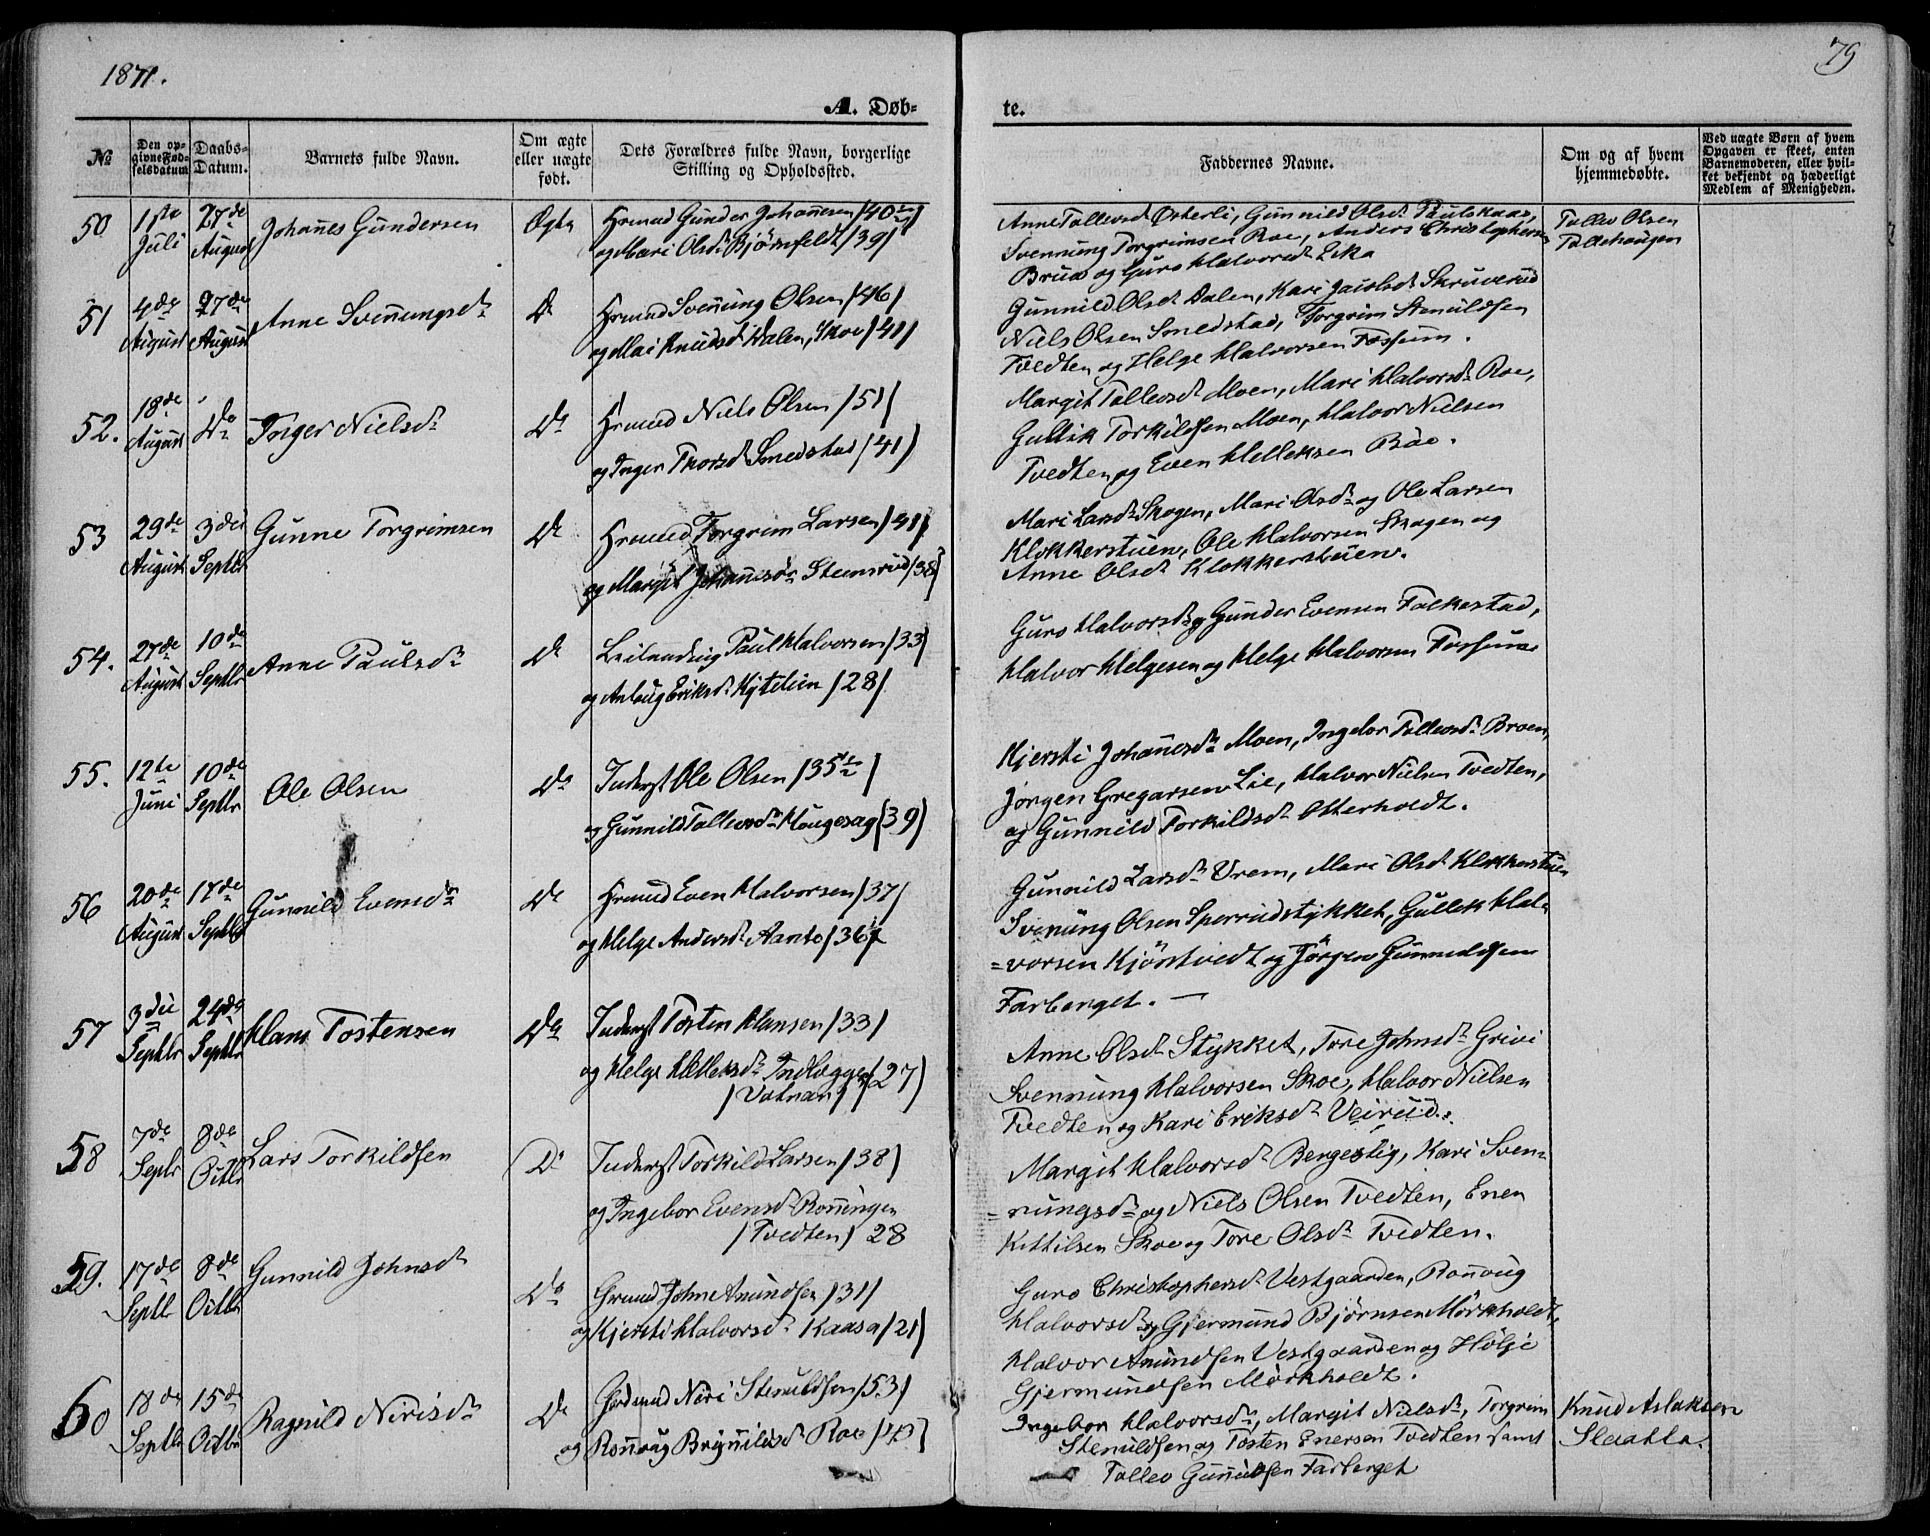 1871.
79
A. Døb-
te.
No
Den op-
givne Fød-
selsdatum
Daabs-
Datum.
Barnets fulde Navn.
Om ægte
eller uægte
født.
Dets Forældres fulde Navn, borgerlige
Stilling og Opholdssted.
Faddernes Navne.
Om og af hvem
hjemmedøbte.
Ved uægte Børn af hvem
Opgaven er skeet, enten
Barnemoderen, eller hvil-
ket bekjendt og hæderligt
Medlem af Menigheden.
50 11te Juli 27de August Johannes Gundersen Ægte
Hrmnd Gunder Johannesen /40½/
og Mari Olsdr Bjørnfeldt /39/
Anne Tollevsdr Østerli, Gunnild Olsdr Paulskaas,
Svennung Torgrimsen Roe, Anders Christophersen
Bruu og Guro Halvorsdr Lika
Tollev Olsen
Tollehaugen
51 4de August 27de August Anne Svennungsdr Do
Hrmnd Svennung Olsen /46/
og Mari Knudsdr Dalen, Skoe /41/
Gunnild Olsdr Dalen, Kari Skruverud
Niels Olsen Smedstad, Torgrim Stenulfsen
Tvedten og Helge Halvorsen Fossum.
52. 18de August Do Inger Nielsdr Do
Hrmnd Niels Olsen /51/
og Inger Thorsdr Smedstad /41/
Margit Tollevsdr Moen, Mari Halvorsdr Roe,
Gullik Torkildsen Moen, Halvor Nielsen
Tvedten og Even Helleksen Böe.
53 29de August 3die Septbr Gunne Torgrimsen Do
Hrmnd Torgrim Larsen /41/
og Margit Johannesdr Stensrud /38/
Mari Larsdr Skogen, Mari Olsdr og Ole Larsen
Klokkerstuen, Ole Halvorsen Skogen og
Anne Olsdr Klokkerstuen.
54. 27de August 10de Septbr Anne Paulsdr Do
Leilending Paul Halvorsen /33/
og Anlaug Eriksdr Kytelien /28/
Guro Halvorsdr og Gunder Evensen Folkestad,
Halvor Helgesen og Helge Halvorsen Fossum
55. 12te Juni 10de Septbr Ole Olsen Do
Inderst Ole Olsen /35½/
og Gunnild Tollevsdr Haugesag /39/
Kjersti Johannesdr Moen, Ingebor Tollevsdr Broen,
Jørgen Gregarsen Lie, Halvor Nielsen Tvedten,
og Gunnild Torkildsdr Otterholdt.
56 20de August 17de Septbr Gunnild Evensdr Do
Hrmnd Even Halvorsen /37/
og Helge Andersdr Aanto /36½/
Gunnild Larsdr Vrem, Mari Olsdr Klokkerstuen
Svenung Olsen Sperrudstykket, Gullek Hal-
=vorsen Kjöstvedt og Jörgen Gunnulfsen
Farberget. —
57 3die Septbr 24de Septbr Hans Tostensen Do
Inderst Tosten Hansen /33/
og Helge Helleksdr Indlægge /27/
/Vatnar/
Anne Olsdr Stykket, Tore Johnsdr Grivi
Svennung Halvorsen Skoe, Halvor Nielsen
Tvedten og Kari Eriksdr Veirud.
58 7de Septbr 8de Octbr Lars Torkildsen Do
Inderst Torkild Larsen /38/
og Ingebor Evensdr Ronningen
/Tvedten/ 28
Margit Halvorsdr Bergestig, Kari Sven-
=nungsdr og Niels Olsen Tvedten, Enen
Kittilsen Skoe og Tore Olsdr Tvedten.
59. 17de Septbr 8de Octbr Gunnild Johnsdr Do
Grmnd John Amundsen /31/
og Kjersti Halvorsdr Kaasa /21/
Guro Christophersdr Vestgaarden, Ronnoug
Halvorsdr og Gjermund Bjørnsen Mörkholdt,
Halvor Amundsen Vestgaarden og Hölje
Gjermundsen Mörkholdt.
60 18de Septbr 15de Octbr Ragnild Nirisdr Do
Grdmnd Niri Stenulfsen /53/
og Ronnoug Brynildsdr Roe /40/
Ingebor Halvorsdr, Margit Nielsdr, Torgrim
Stenulfsen og Tosten Enersen Tvedten samt
Tollev Gunnulfsen Farberget
Knud Aslaksen
Slaatta.